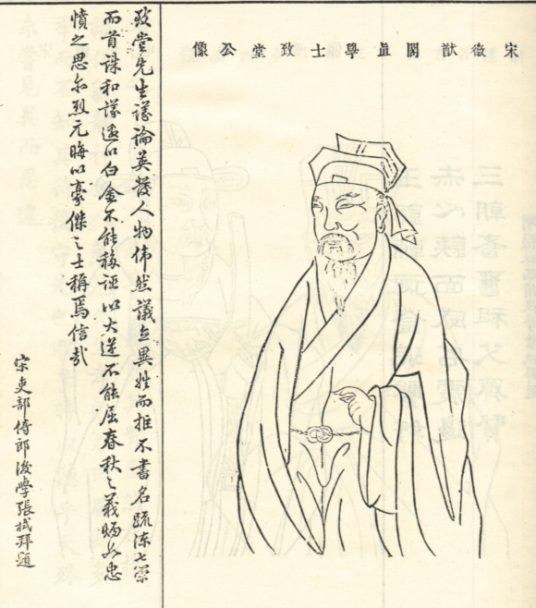 宋徽猷閣直學士致堂公像
致堂先生議論英發人物偉然議立異姓而拒不書名疏陳七策
而首誅和議遺以白金不能移誣以大逆不能屈春秋之義炳如忠
憤之思烈元晦以豪傑之士稱焉信哉
宋吏部侍郎後學張栻拜題